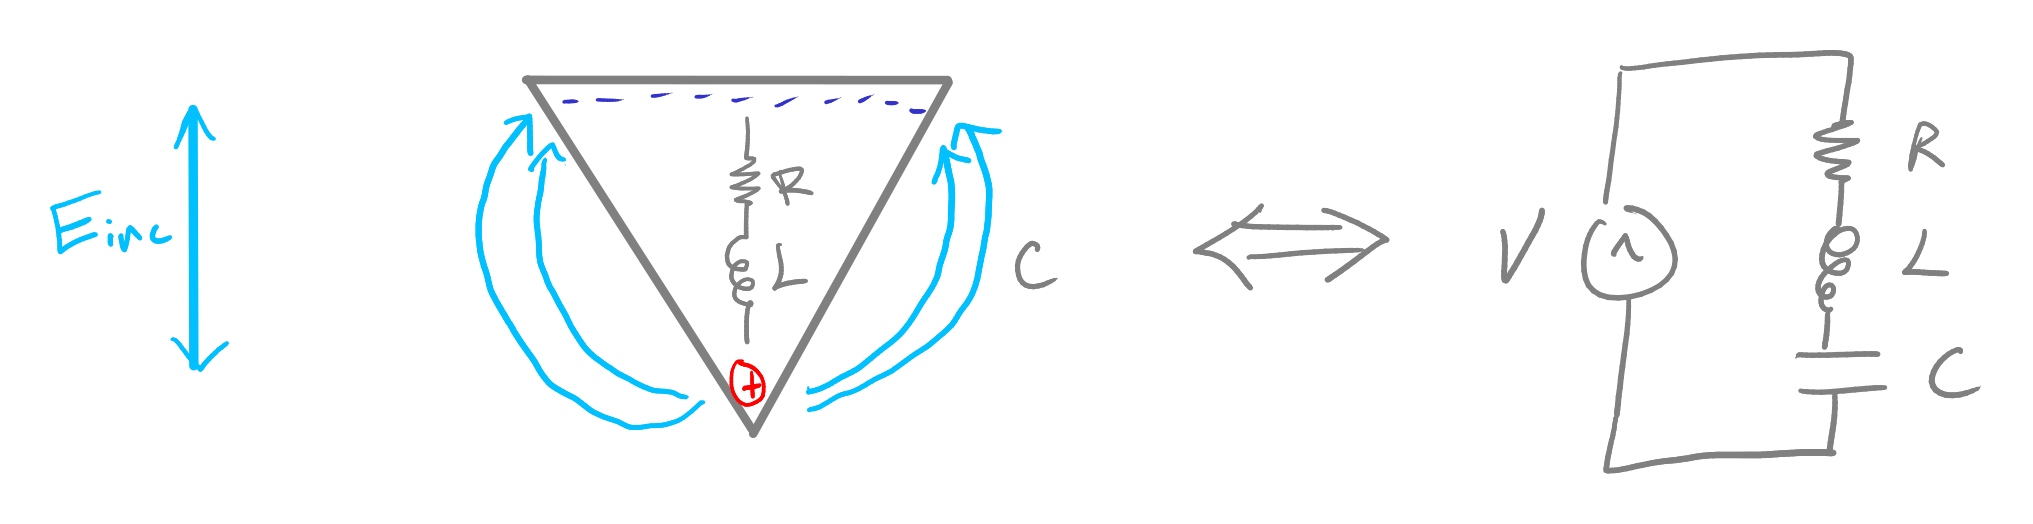 Einc
R
L
+
C
V
R
L
C